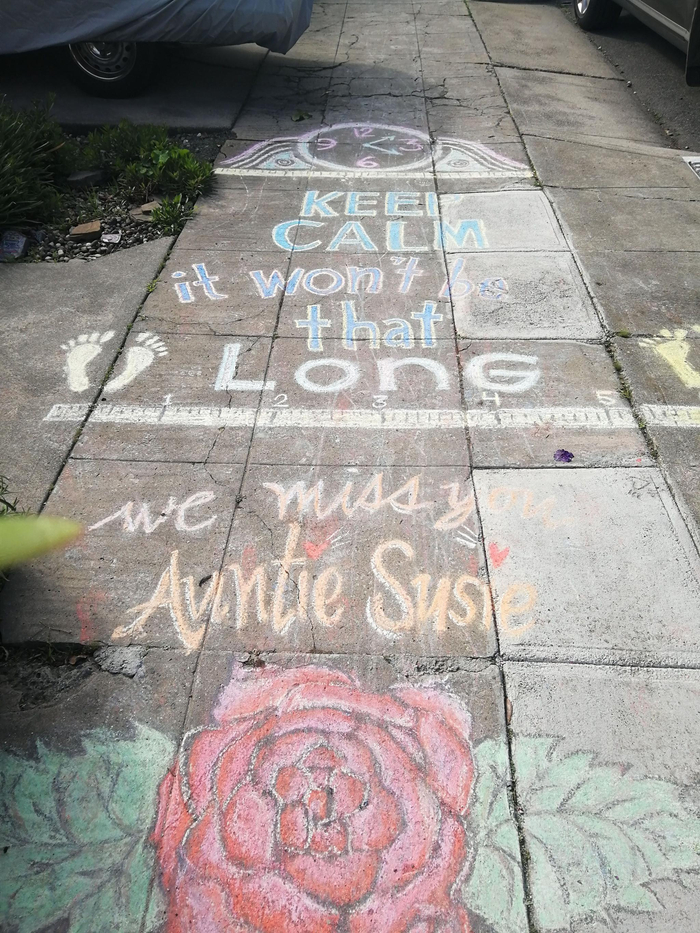 12
9 3
6
KEEP
CALM
it won't be
that
LONG
1 2 3 4 5
we miss you...
Auntie Susie